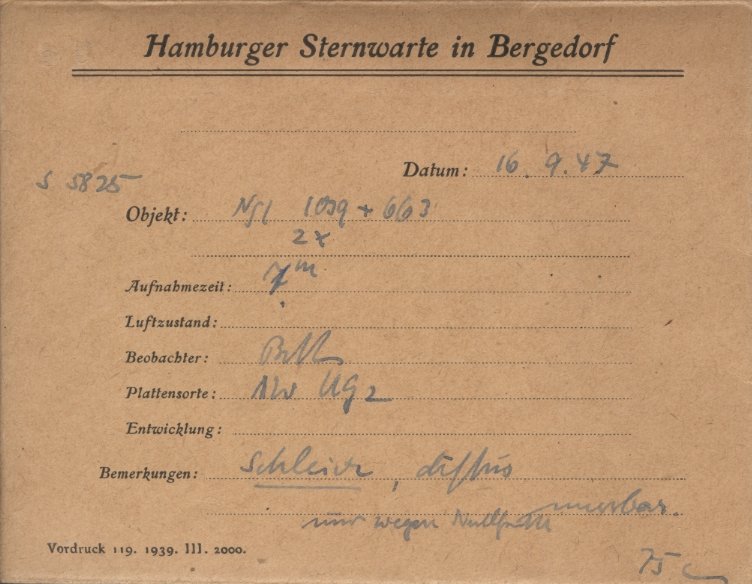 Hamburger Sternwarte in Bergedorf
Datum: 16. 9. 47
S 5825
Objekt: 1039 + 663
2x
Aufnahmezeit: 7m
Luftzustand:
Beobachter:
Plattensorte: UG2
Entwicklung:
Bemerkungen: Schleier, diffus
nur wegen
Vordruck 119. 1939. III. 2000.
75